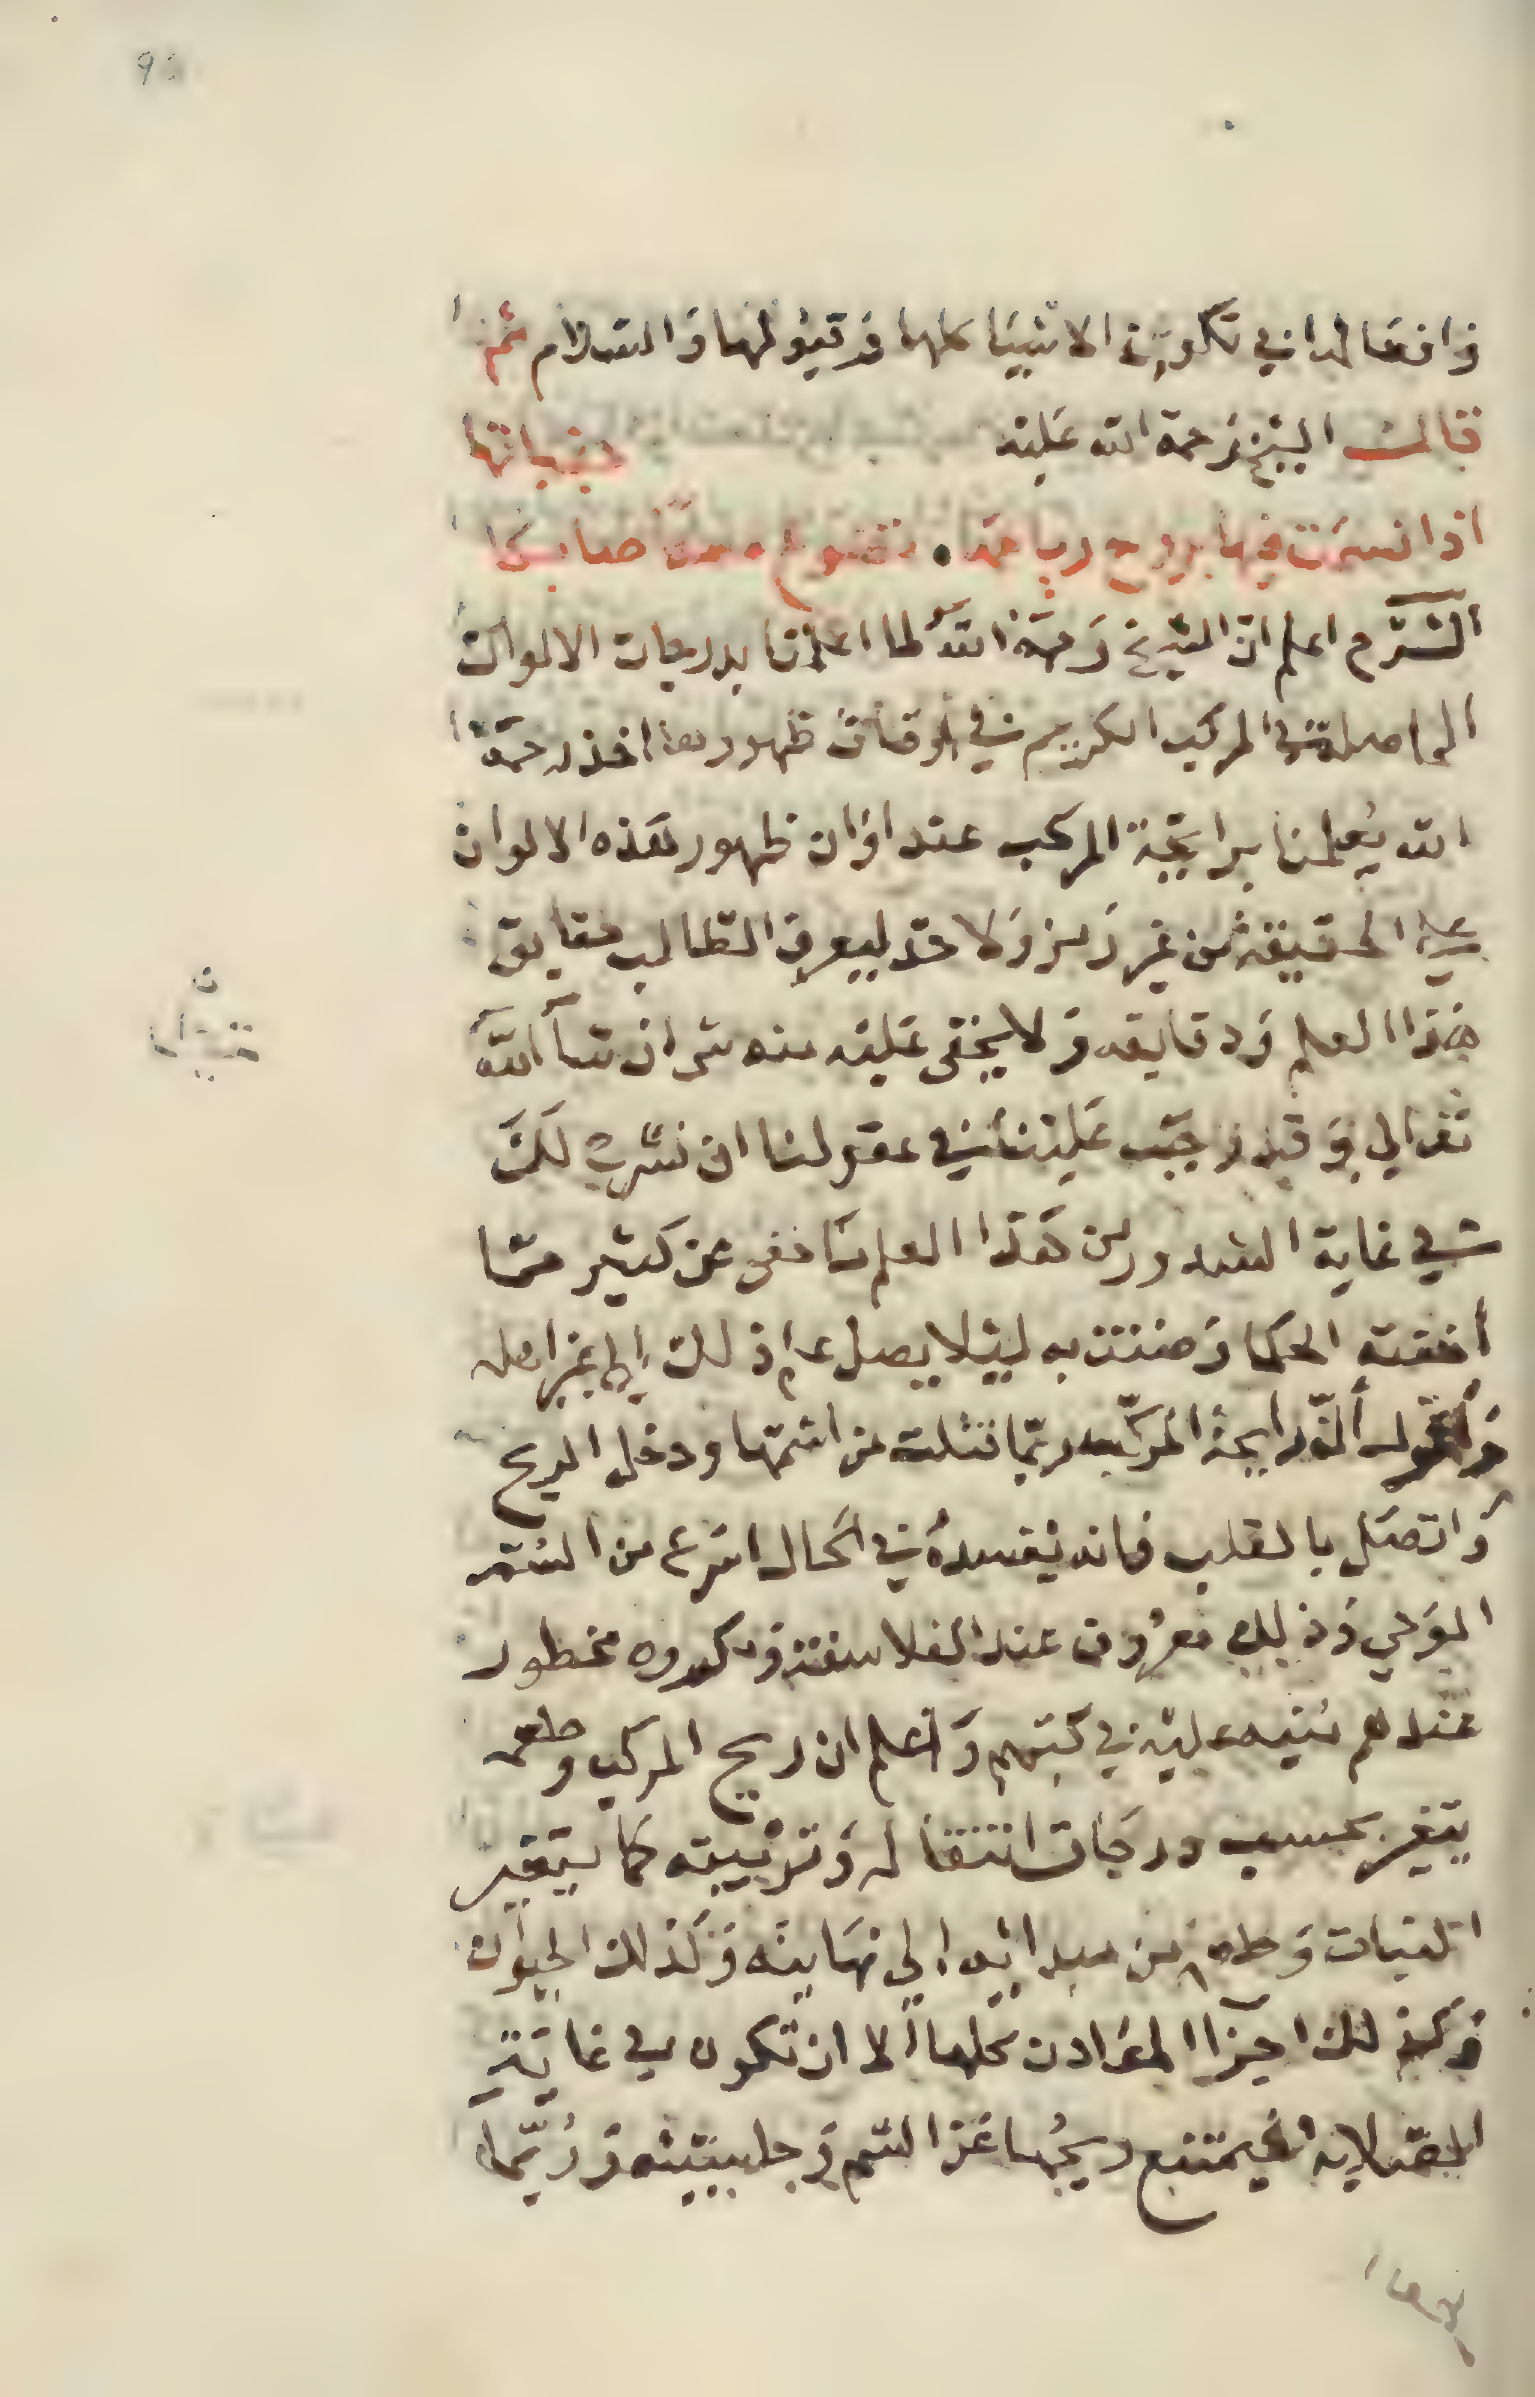 وافعالها في تكوين الاشيا كلها وقبولها والسلام ثم
قال الشيخ رحمة الله عليه جنباتها
اذا نسمت فيها بريح رياحها • تضوع مسكا صايكا
الشرح اعلم ان الشيخ رحمه الله لما اعلمنا بدرجات الالوان
الحاصلة في المركب الكريم في اوقات ظهورها اخذ رحمة
الله يعلمنا برايحة المركب عند اوان ظهور هذه الالوان
علي الحقيقة من غير رمز ولا حد ليعرف الطالب حقايق
هذا العلم ودقايقه ولا يخفي عليه منه شي ان شا الله
تعالي وقد وجب علينا في عقولنا ان نشرح لك
في غاية الشدور من هذا العلم ما خفي عن كثير مما
أخفته الحكما وضنت به ليلا يصل علم ذلك إلي غير اهله
وأقول أن رايحة المركب ربما قتلت من اشتمها ودخل الريح
واتصل بالقلب فانه يفسده في الحال اسرع من السم
الوحي وذلك معروف عند الفلاسفة مخطور
عندهم منبه عليه في كتبهم وأعلم ان ريح المركب وطعمه
يتغير بحسب درجات انتقاله وتربيته كما يتغير
النبات وطعمه من مبدائه الي نهايته وكذلك الحيوان
وكذلك اجزا المعادن كلها الا ان تكون في غاية
الصلابة فيمتنع ريحها عن الشم وربما